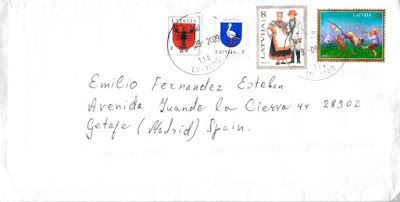 LATVIJA LATVIJA LATVIJA LATVIJA
5
-09-2009
114
LV-1060
Emilio Fernandez Esteban
Avenida Juande la Cierva 44 28902
Getafe (Madrid) Spain.